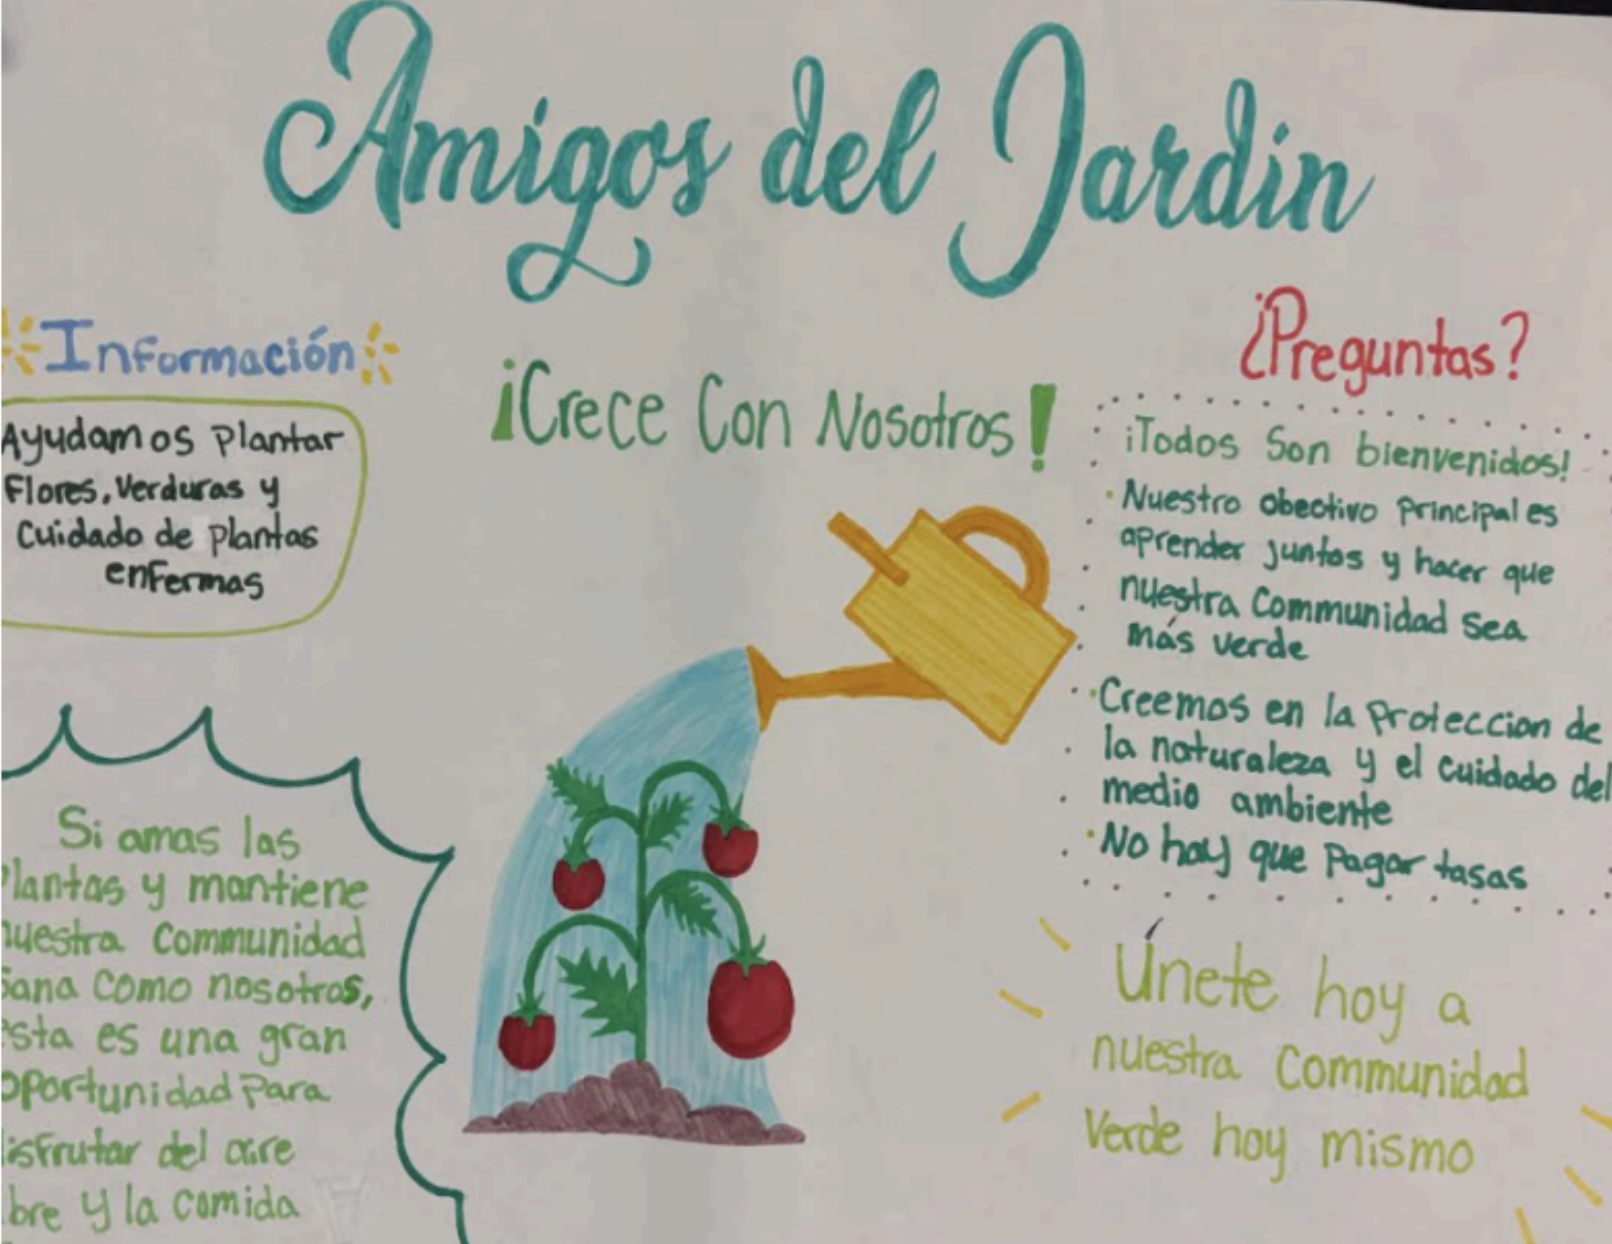 Amigos del Jardin
Información
Ayudamos plantar
Flores, verduras y
Cuidado de plantas
enfermas
¡Crece Con Nosotros!
¿Preguntas?
¡Todos Son bienvenidos!
• Nuestro obectivo principal es
aprender juntos y hacer que
nuestra Communidad sea
más verde
• Creemos en la proteccion de
la naturaleza y el cuidado del
medio ambiente
• No hay que pagar tasas
Si amas las
lantas y mantiene
uestra Communidad
ana como nosotros,
sta es una gran
oportunidad para
isfrutar del aire
bre y la comida
Únete hoy a
nuestra Communidad
Verde hoy mismo